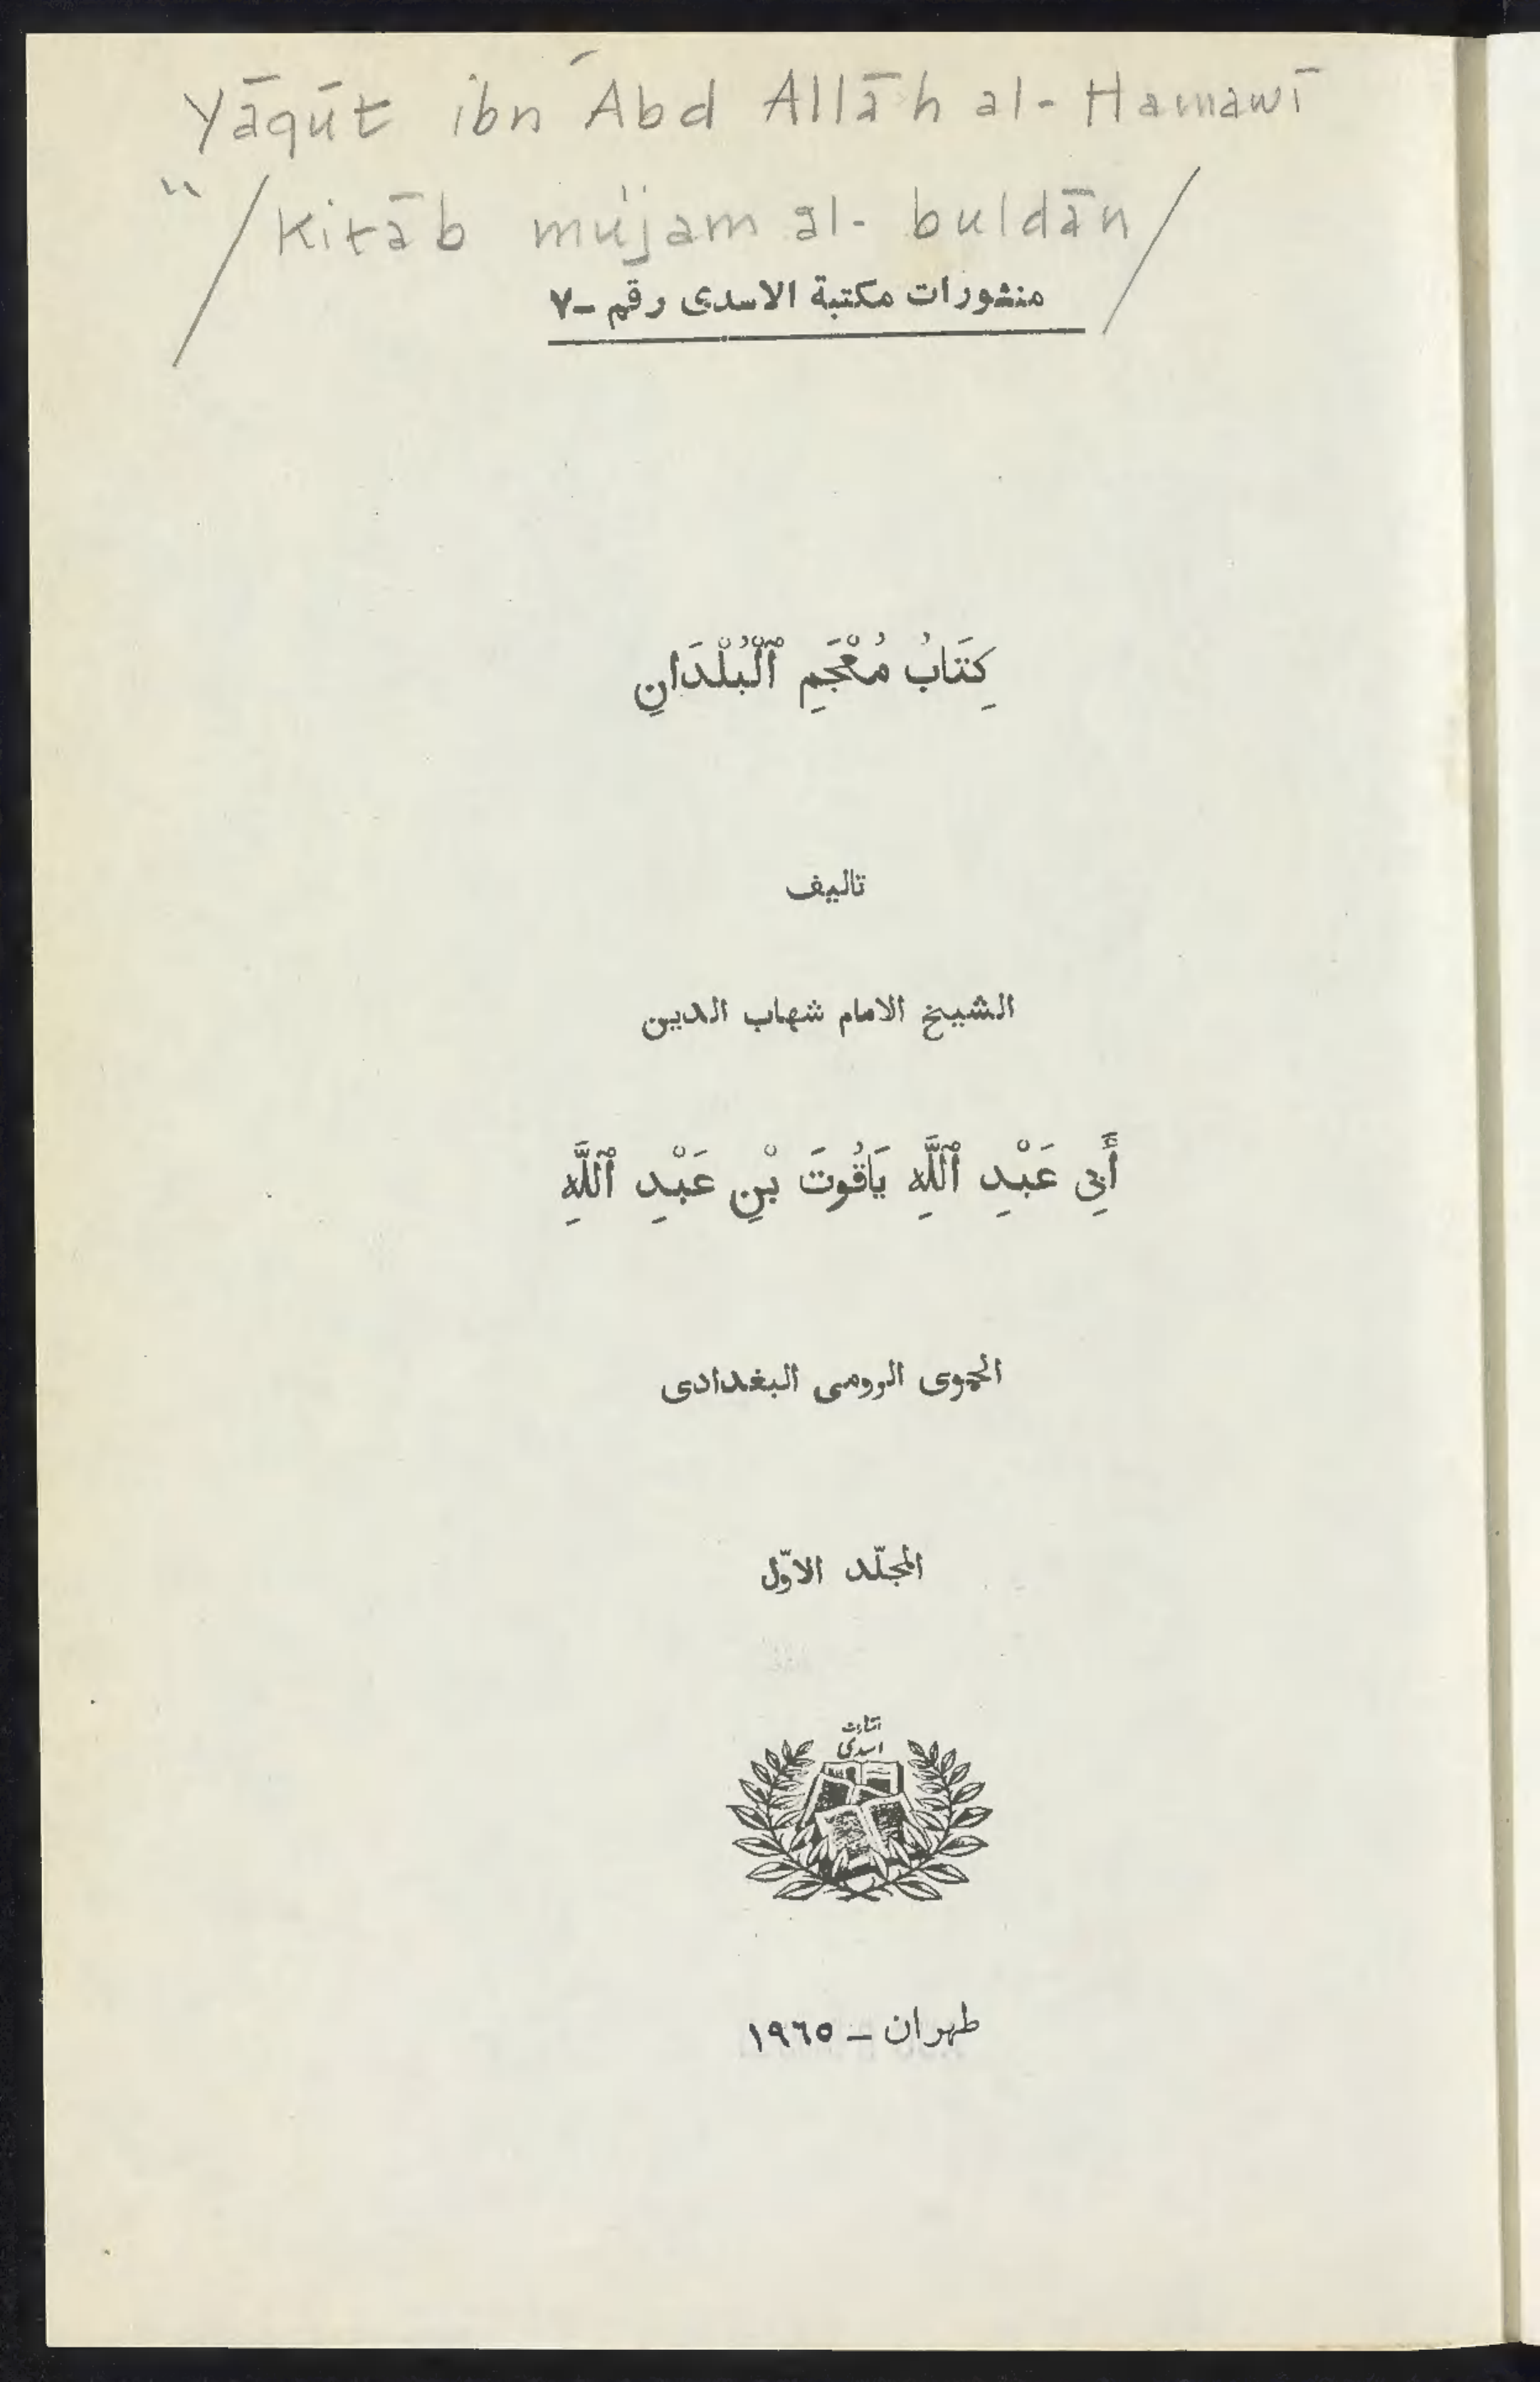 Yāqūt ibn ʿAbd Allāh al-Hamawī
"/Kitāb mu'jam al-buldān/
منشورات مكتبة الاسدى رقم -٧
كِتَابُ مُعْجَمِ ٱلْبُلْدَانِ
تاليف
الشيخ الامام شهاب الدين
أَبِى عَبْدِ ٱللَّهِ يَاقُوتَ بْنِ عَبْدِ ٱللَّهِ
الحموى الرومى البغدادى
المجلّد الاوّل
اسدى
طهران - ١٩٦٥